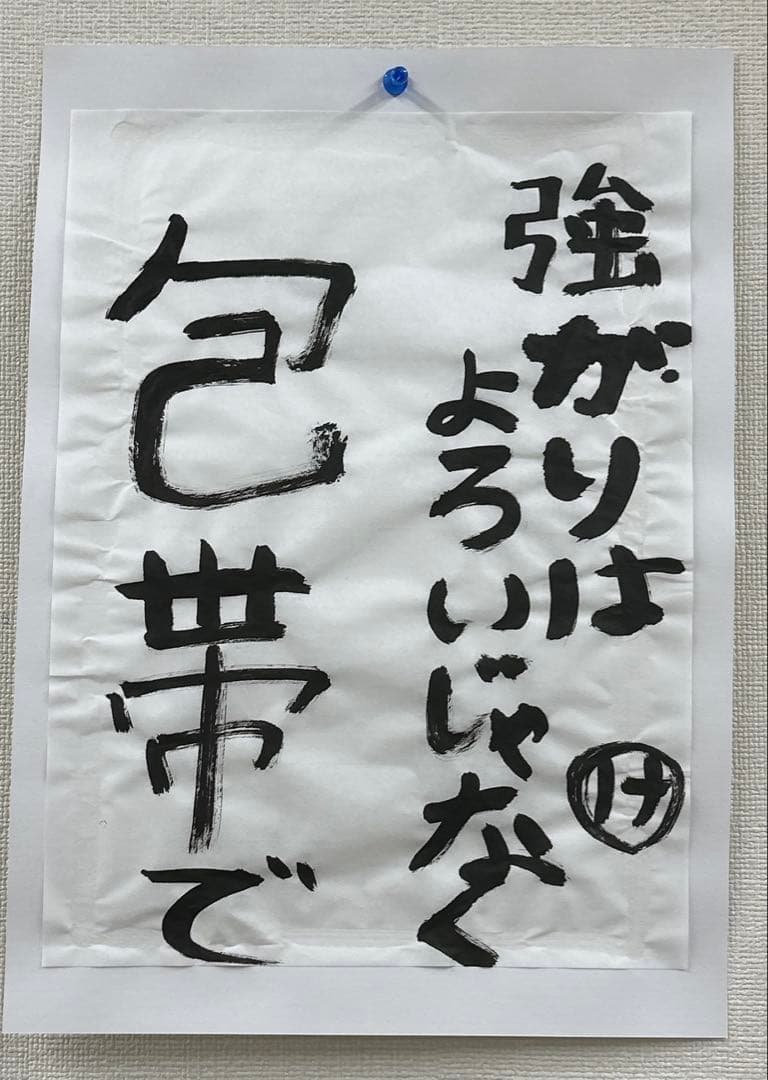 強がりは
よろいじゃなく
包帯で
け